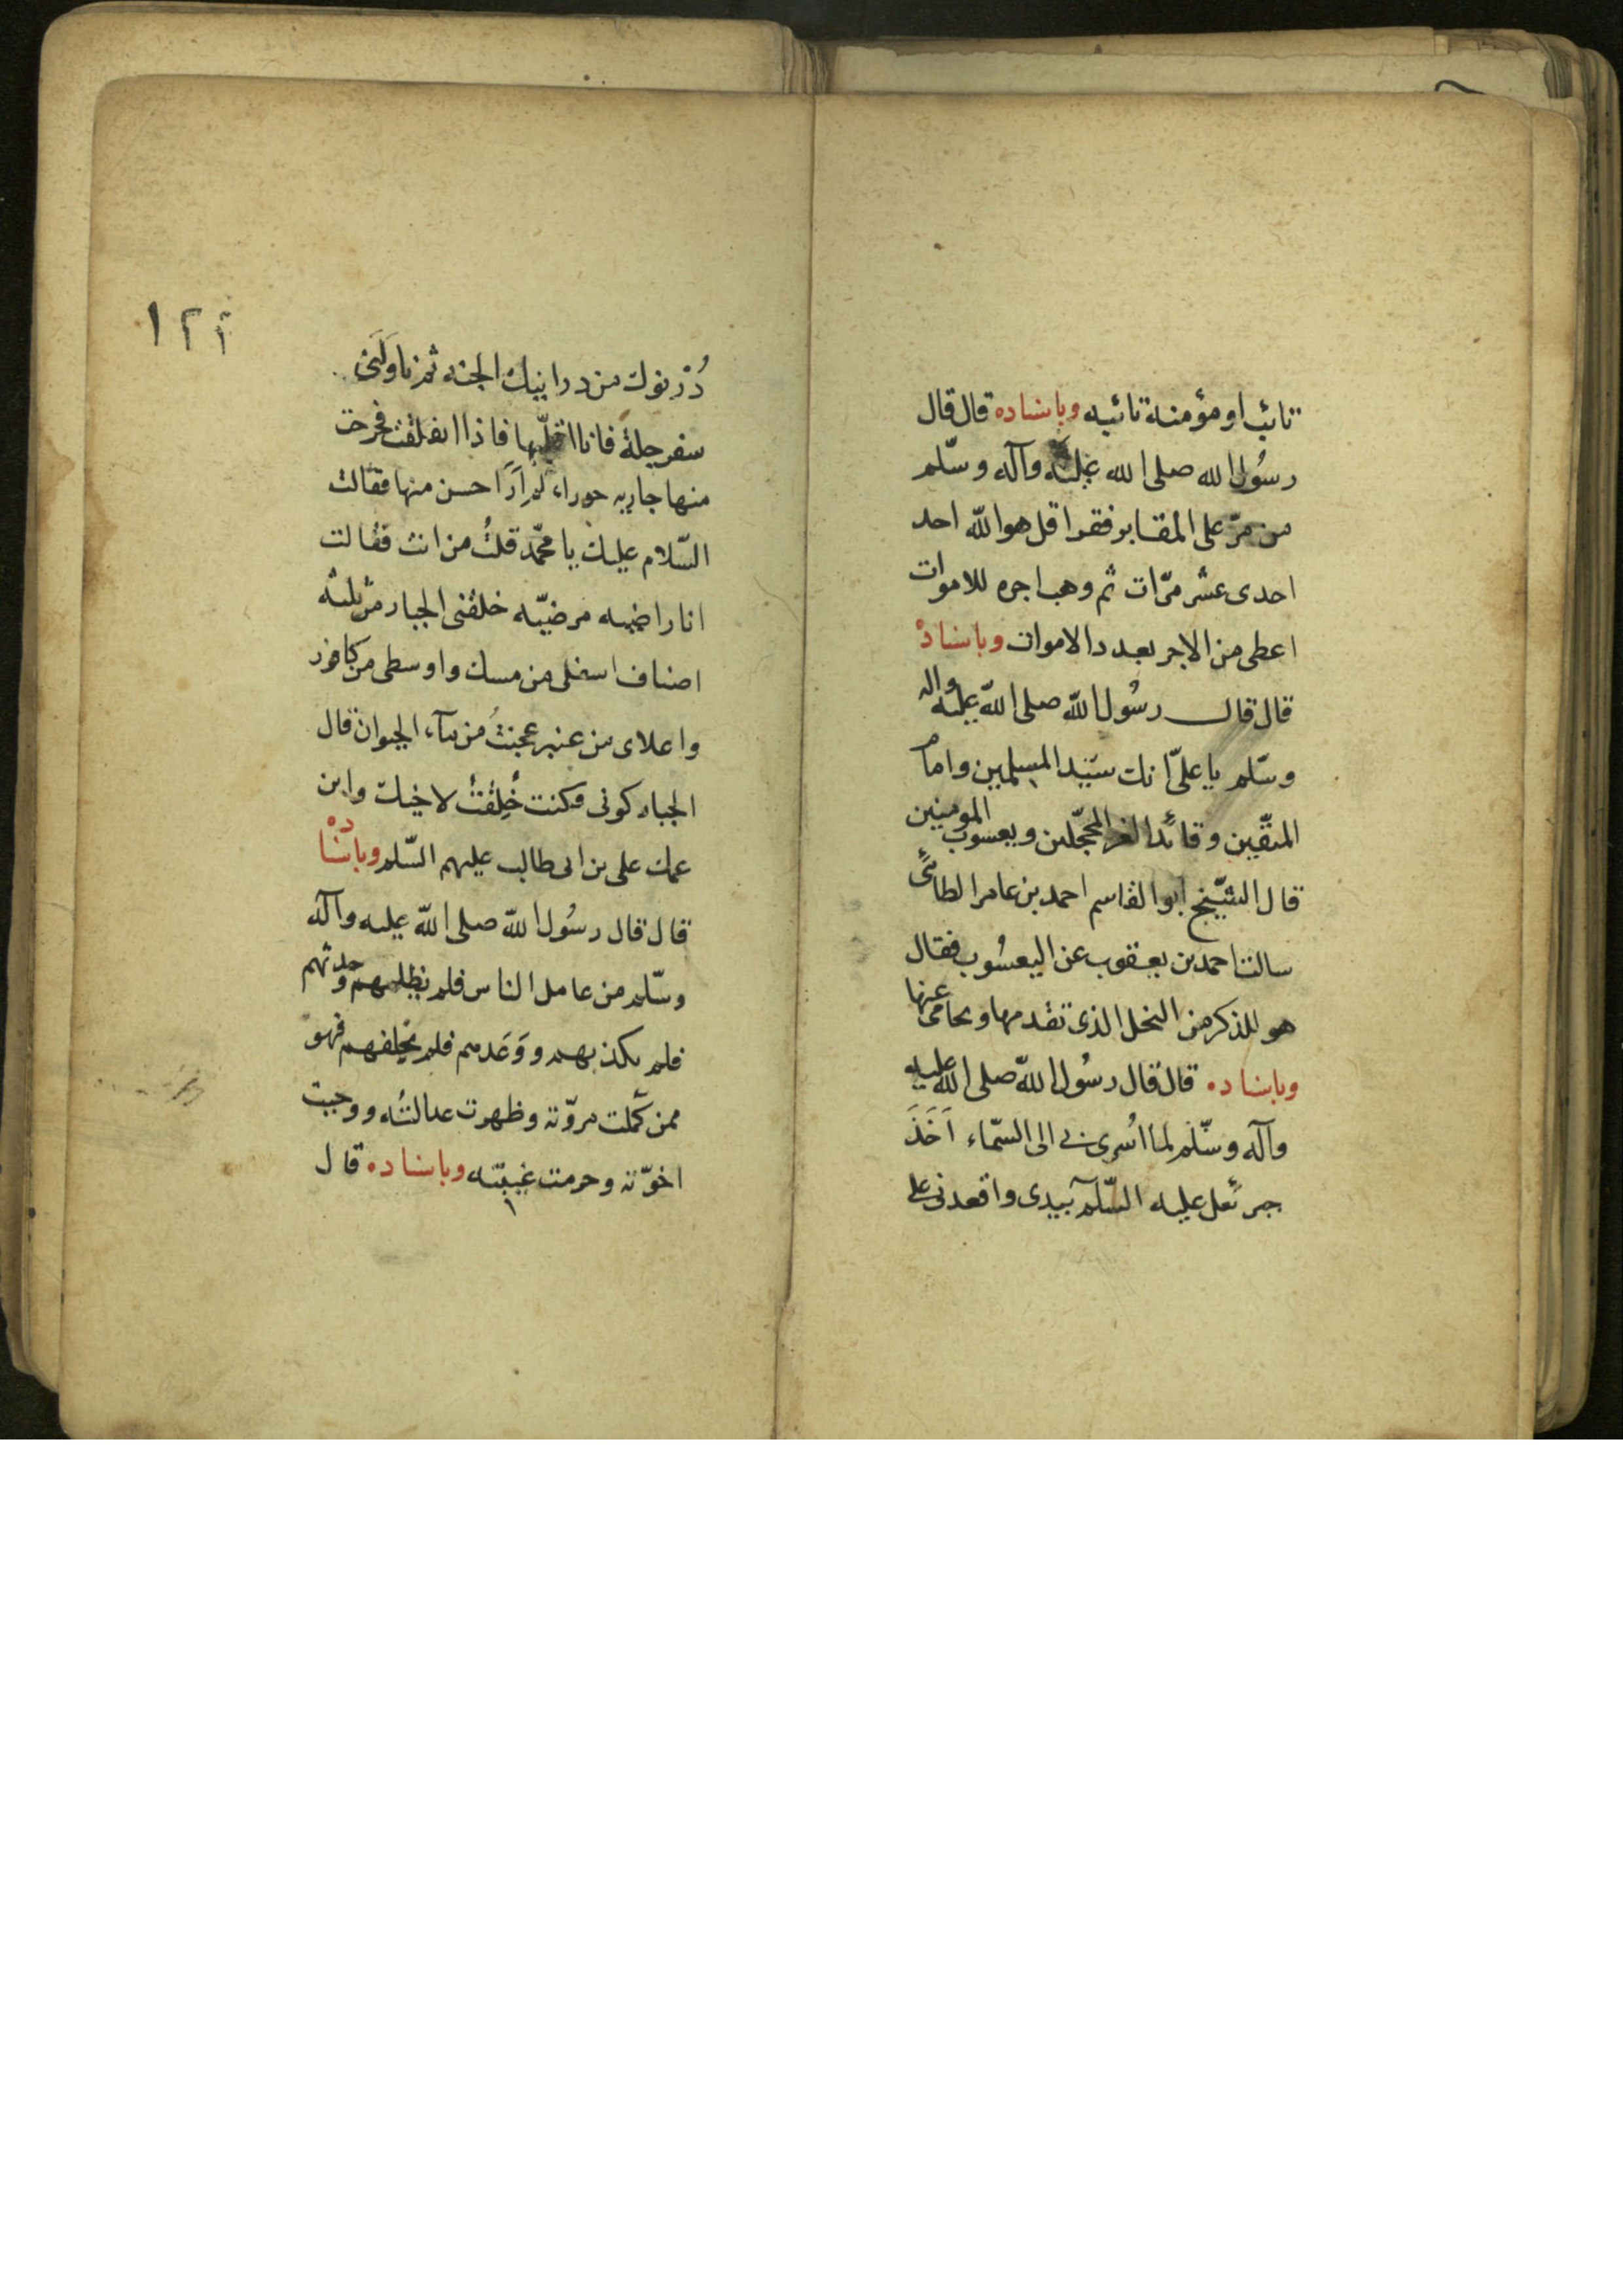 تائب او مؤمنة تائبه وباسناده قال قال
رسُول الله صلى الله عليه وآله وسلّم
من مرّ على المقابر فقرا قل هو الله احد
احدى عشر مرّات ثم وهب اجره للاموات
اعطى من الاجر بعدد الاموات وباسناده
قال قال رسُول الله صلى الله عليه واله
وسلّم يا علىّ انك سيّد المسلمين وامام
المتّقين وقائد الغر المحجّلين ويعسوب المومنين
قال الشيّخ ابو القاسم احمد بن عامر الطائى
سالت احمد بن يعقوب عن اليعسُوب فقال
هو للذكر من النحل الذى تقدمها ويحامى عنها
وباسناده قال قال رسُول الله صلى الله عليه
وآله وسّلم لما اسُرى بى الى السّماء اَخَذَ
جبرئيل عليه السّلم بيدى واقعدنى على
١٢٢
دُرنوك من درانيك الجنه ثم ناوَلَنى
سفرجلة فانا اقلّبها فاذا انفلقت فخرجت
منها جاريه حوراء لم اَرَ احسن منها فقالت
السّلام عليك يا محمّد قلتُ من انت فقالت
انا راضيه مرضيّه خلقنى الجبار من ثلثه
اصناف اسفلى من مسك واوسطى من كافور
واعلاى من عنبر عجنتُ من مآء الحيوان قال
الجبار كونى وكنت خُلِقتُ لاخيك وابن
عمك على بن ابى طالب عليهم السّلم وباسناده
قال قال رسُول الله صلى الله عليه وآله
وسّلم من عامل الناس فلم يظلمهم وحدثهم
فلم يكذبهم ووَعَدهم فلم يخلفهم فهو
ممن كملت مروّته وظهرت عدالتُه ووجبت
اخوّته وحرمت غيبته وباسناده قال